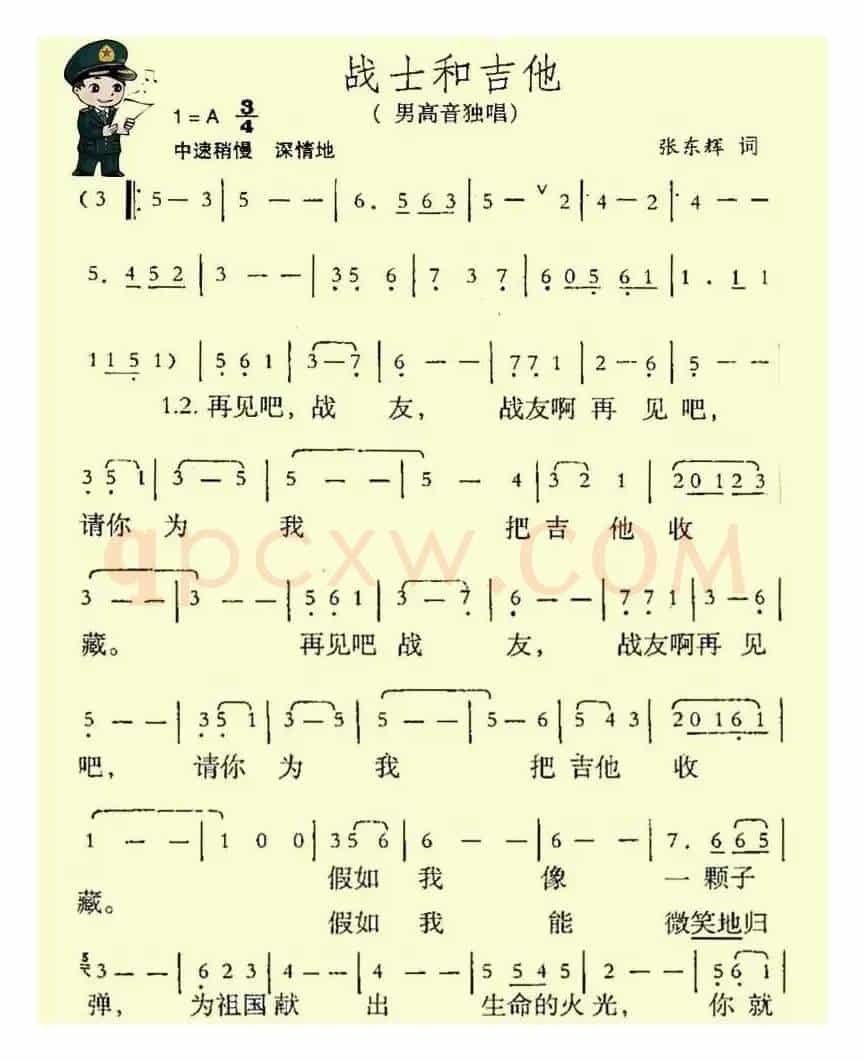 战士和吉他
（ 男高音独唱）
1 = A 3/4
中速稍慢 深情地
张东辉 词
(3 |: 5 — 3 | 5 — — | 6. 5 6 3 | 5 — ∨ 2 | 4 — 2 | 4 — —
5. 4 5 2 | 3 — — | 3 5 6 | 7 3 7 | 6 0 5 6 1 | 1 . 1 1
1 1 5 1) | 5 6 1 | 3 — 7 | 6 — — | 7 7 1 | 2 — 6 | 5 — —
1.2. 再见吧，战 友， 战友啊 再 见 吧，
3 5 1 | 3 — 5 | 5 — — | 5 — 4 | 3 2 1 | 2 0 1 2 3
请你 为 我 把 吉 他 收
qpcxw.COM
3 — — | 3 — — | 5 6 1 | 3 — 7 | 6 — — | 7 7 1 | 3 — 6
藏。 再见吧 战 友， 战友啊再 见
5 — — | 3 5 1 | 3 — 5 | 5 — — | 5 — 6 | 5 4 3 | 2 0 1 6 1
吧， 请你 为 我 把 吉他 收
1 — — | 1 0 0 | 3 5 6 | 6 — — | 6 — — | 7. 6 6 5
假如 我 像 一 颗子
藏。
假如 我 能 微笑地归
3 — — | 6 2 3 | 4 — — | 4 — — | 5 5 4 5 | 2 — — | 5 6 1
弹， 为祖国献 出 生命的火 光， 你 就